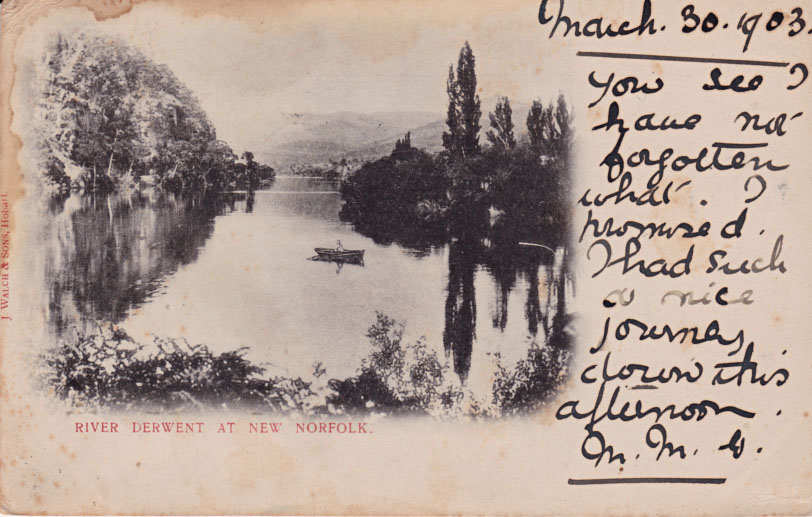 March. 30. 1903.
You see I
have not
forgotten
what. I
promised.
I had such
a nice
journey
down this
afternoon.
M. M.
J. WALCH & SONS, Hobart
RIVER DERWENT AT NEW NORFOLK.